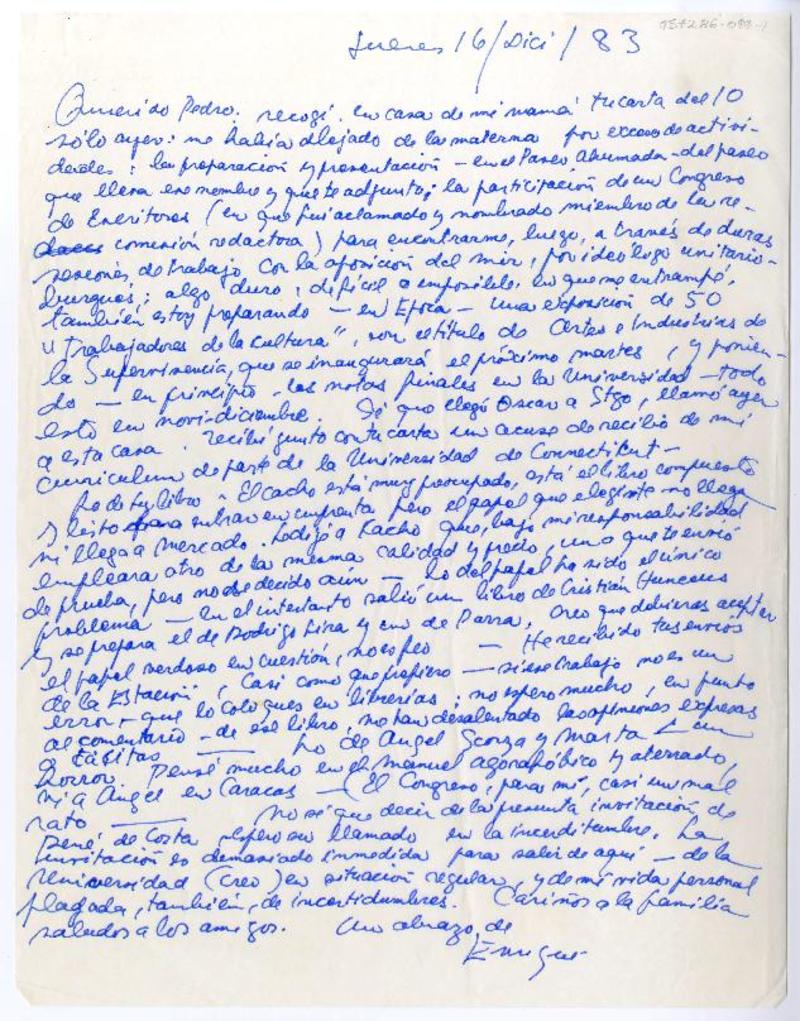 Jueves 16/Dici/83
Querido Pedro: recogí en casa de mi mamá tu carta del 10
sólo ayer: me había alejado de la materna por exceso de activi-
dades: la preparación y presentación – en el Paseo Ahumada – del paseo
que lleva ese nombre y que te adjunto; la participación de un Congreso
de Escritores (en que fui aclamado y nombrado miembro de la re-
comisión redactora) para encontrarme, luego, a través de duras
sesiones de trabajo con la oposición del mir, por ideólogo unitario-
burgués; algo duro, difícil e imposible, en que me entrampé,
también estoy preparando – en Epoca – una exposición de 50
"Trabajadores de la cultura", con el título de Artes e Industrias de
la Supervivencia, que se inaugurará el próximo martes, y ponien-
do – en principio – las notas finales en la Universidad – todo
esto en novi-diciembre. Sé que llegó Oscar a Stgo, llamó ayer
a esta casa. recibí junto con tu carta un acuse de recibo de mi
curriculum de parte de la Universidad de Connecticut –
Lo de tu libro – El cacho está muy preocupado, está el libro compuesto
y listo para entrar en imprenta pero el papel que elegiste no llega
ni llega a mercado. Le dije a Kacho que, bajo mi responsabilidad
empleara otro de la misma calidad y precio, uno que te envió
de prueba, pero no se decidó aún – Lo del papel ha sido el único
problema – En el intertanto salió un libro de Cristián Huneeus
y se prepara el de Rodrigo Lira y uno de Parra, creo que debieras aceptar
el papel verdoso en cuestión, no es feo – He recibido tus envíos
de la Estación, casi como que prefiero – si ese trabajo no es un
error – que lo coloques en librerías; no espero mucho, en punto
al comentario – de ese libro, me han desalentado las opiniones expresas
o tácitas — Lo de Angel, Scorza y Marta – un
horror. Pensé mucho en el Manuel agorafóbico y aterrado,
ni a Angel en Caracas – (El Congreso, para mí, casi un mal
rato — No sé que decir de la presunta invitación de
René de Costa espero su llamado en la incerditumbre. La
invitación es demasiado inmedida para salir de aquí – de la
Universidad (creo) en situación regular, y de mi vida personal
plagada, también, de incertidumbres. Cariños a la familia
saludos a los amigos. Un abrazo de
Enrique